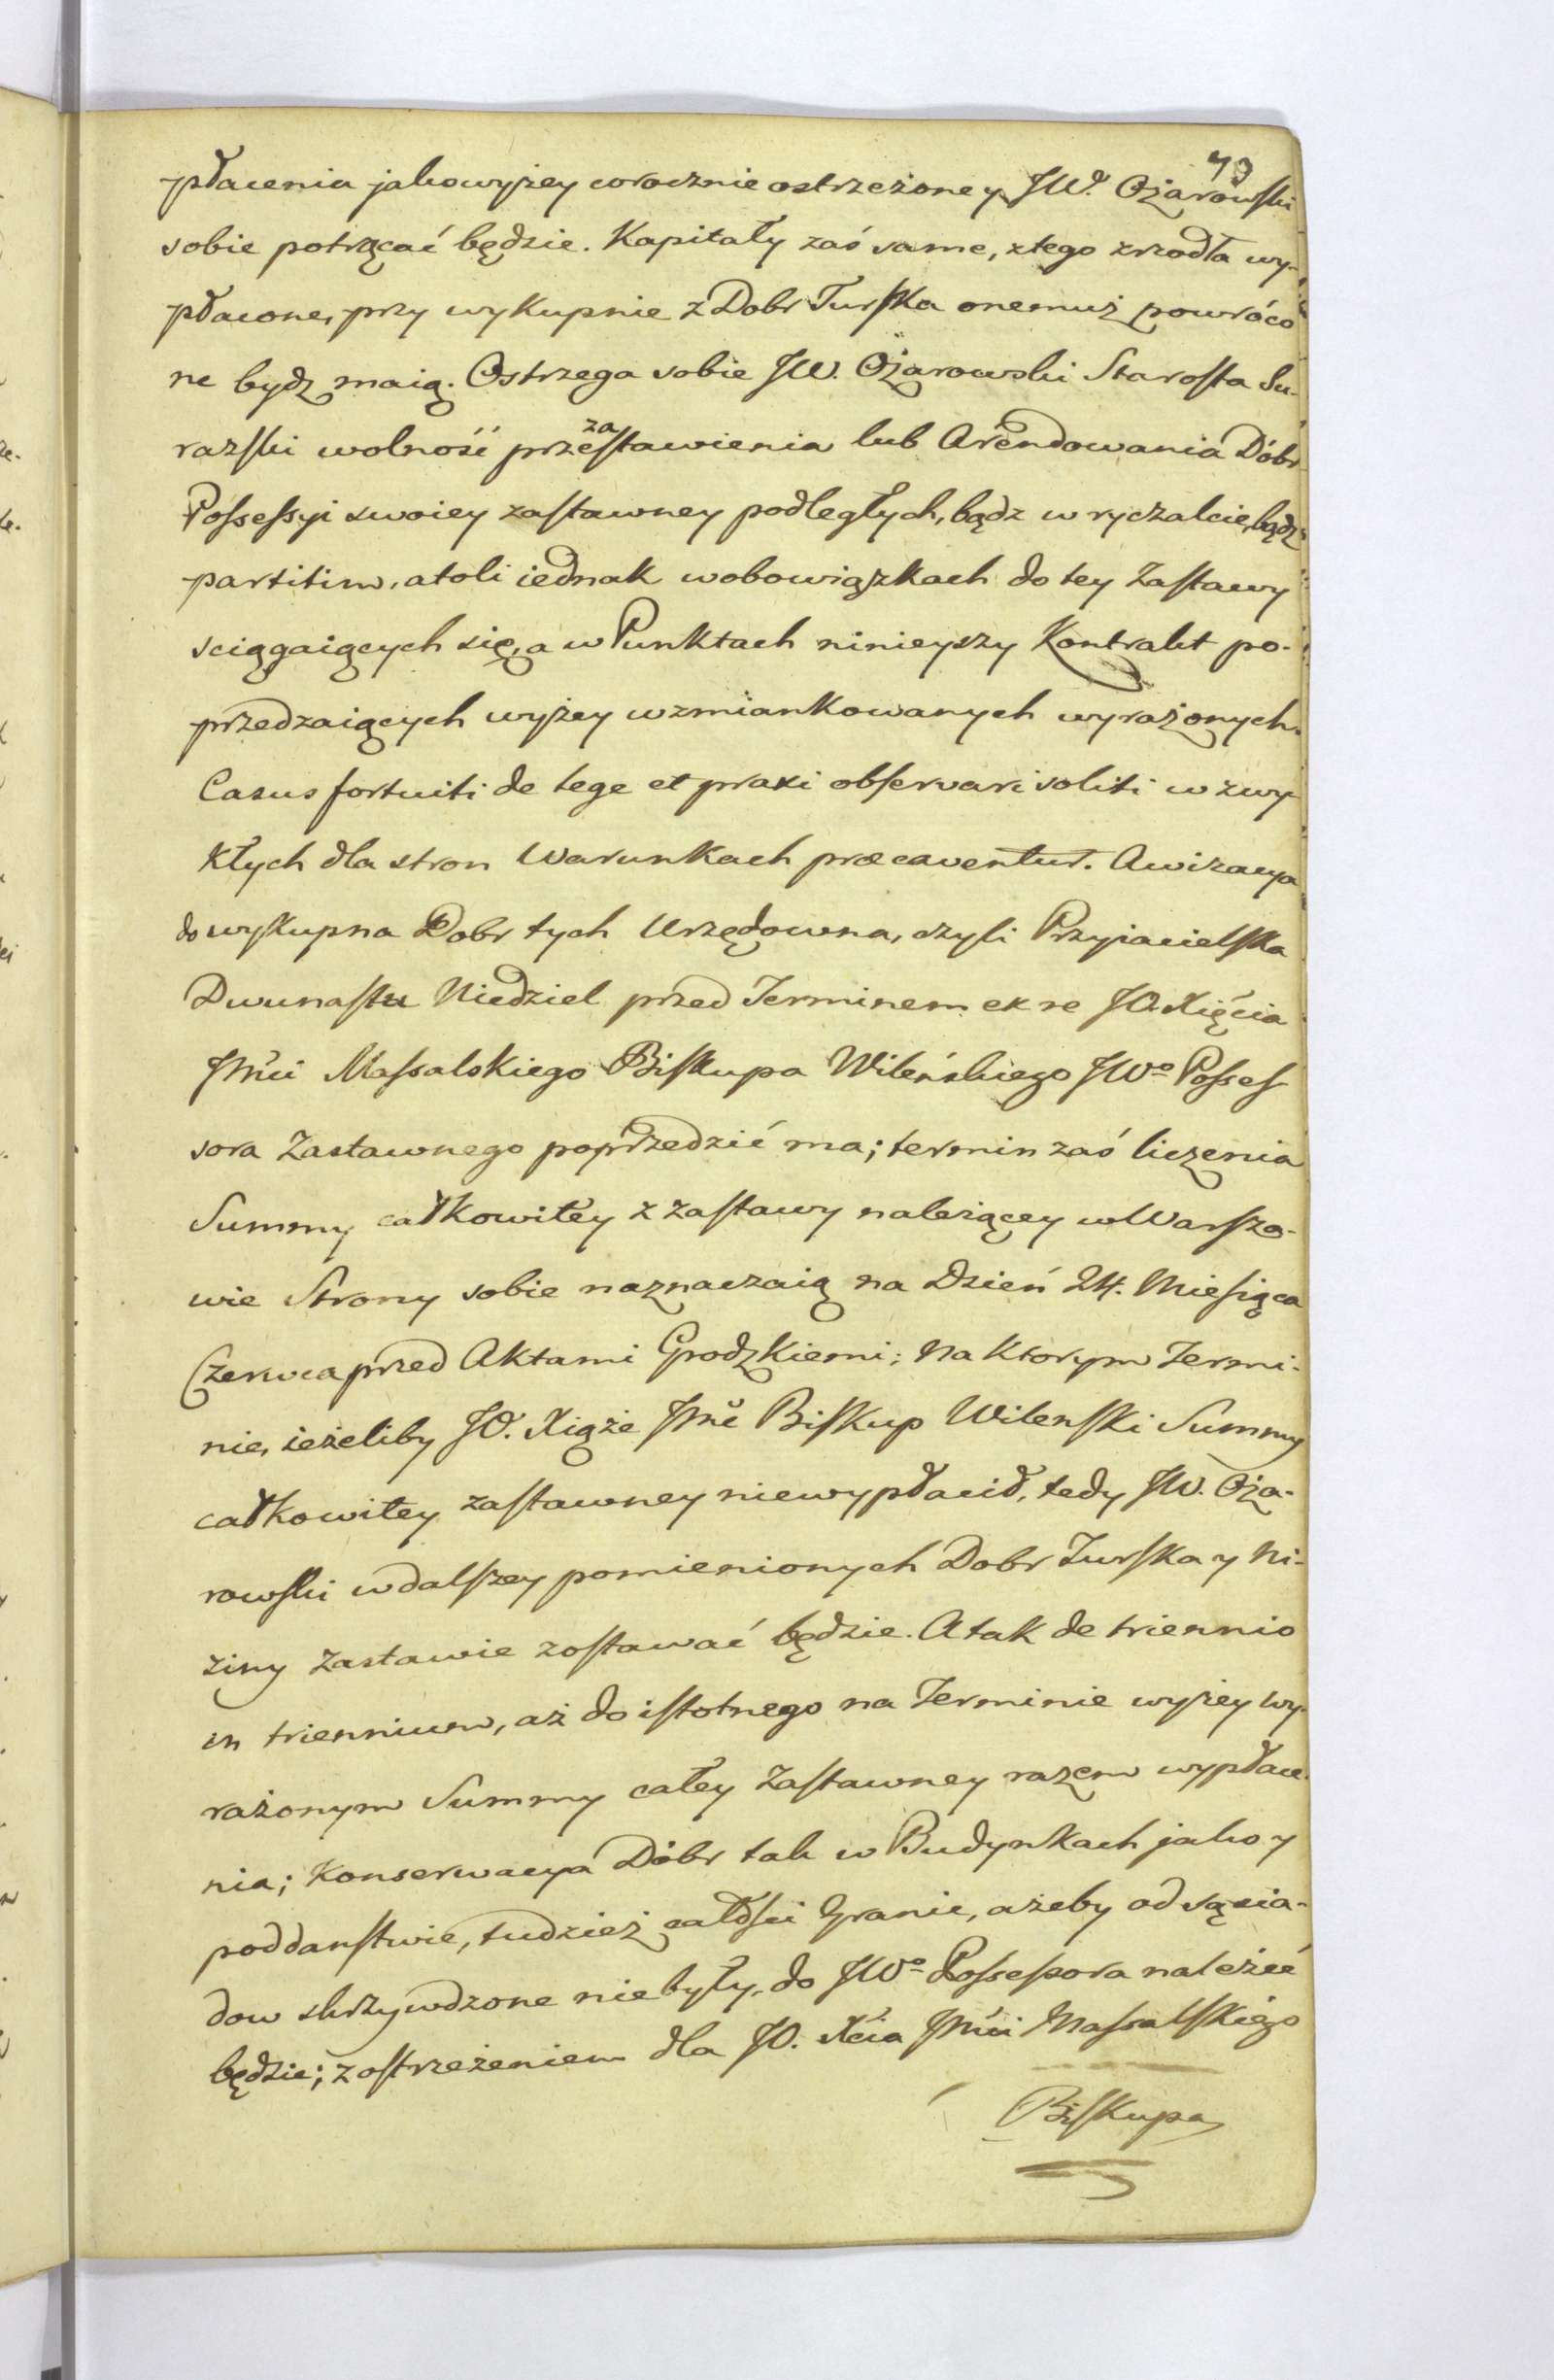 79
płacenia jakowyżey corocznie ostrzeżoney JW. Ożarowski
sobie potrącać będzie. Kapitały zaś same, ztego zrzodła wy-
płacone, przy wykupnie z Dobr Turska onemuż powróco
ne bydz maią. Ostrzega sobie JW. Ożarowski Starosta Su-
razski wolność przezastawienia lub Arendowania Dóbr
Possessyi swoiey zastawney podległych, bądz w ryczalcie, bądz
partitim, atoli iednak wobowiązkach do tey Zastawy
sciągaiących się, a w Punktach ninieyszy Kontrakt po-
przedzaiących wyżey wzmiankowanych wyrażonych.
Casus fortuiti de lege et praxi observari soliti w zwy-
kłych dla stron Warunkach præcaventur. Awizacya
do wykupna Dobr tych Urzędowna, czyli Przyiacielska
Dwunastu Niedziel przed Terminem ex re JO. Xięcia
JMci Massalskiego Biskupa Wileńskiego JWo Posses
sora Zastawnego poprzedzić ma; termin zaś liczenia
Summy całkowitey z zastawy należącey w Warsza-
wie Strony sobie naznaczaią na Dzień 24. Miesiąca
Czerwca przed Aktami Grodzkiemi; Na ktorym Termi-
nie, ieżeliby JO. Xiąże JMc Biskup Wilenski Summy
całkowitey zastawney niewypłacił, tedy JW. Oża-
rowski w dalszey pomienionych Dobr Turska y Ni-
ziny Zastawie zostawać będzie. A tak de triennio
in triennium, aż do istotnego na Terminie wyżey wy-
rażonym Summy całey Zastawney razem wypłace-
nia; Konserwacya Dóbr tak w Budynkach jako y
poddanstwie, tudzież całości Granic, ażeby od sąsia-
dow skrzywdzone nie były, do JWo Possessora należeć
będzie; z ostrzeżeniem dla JO. Xcia JMci Massalskiego
Biskupa